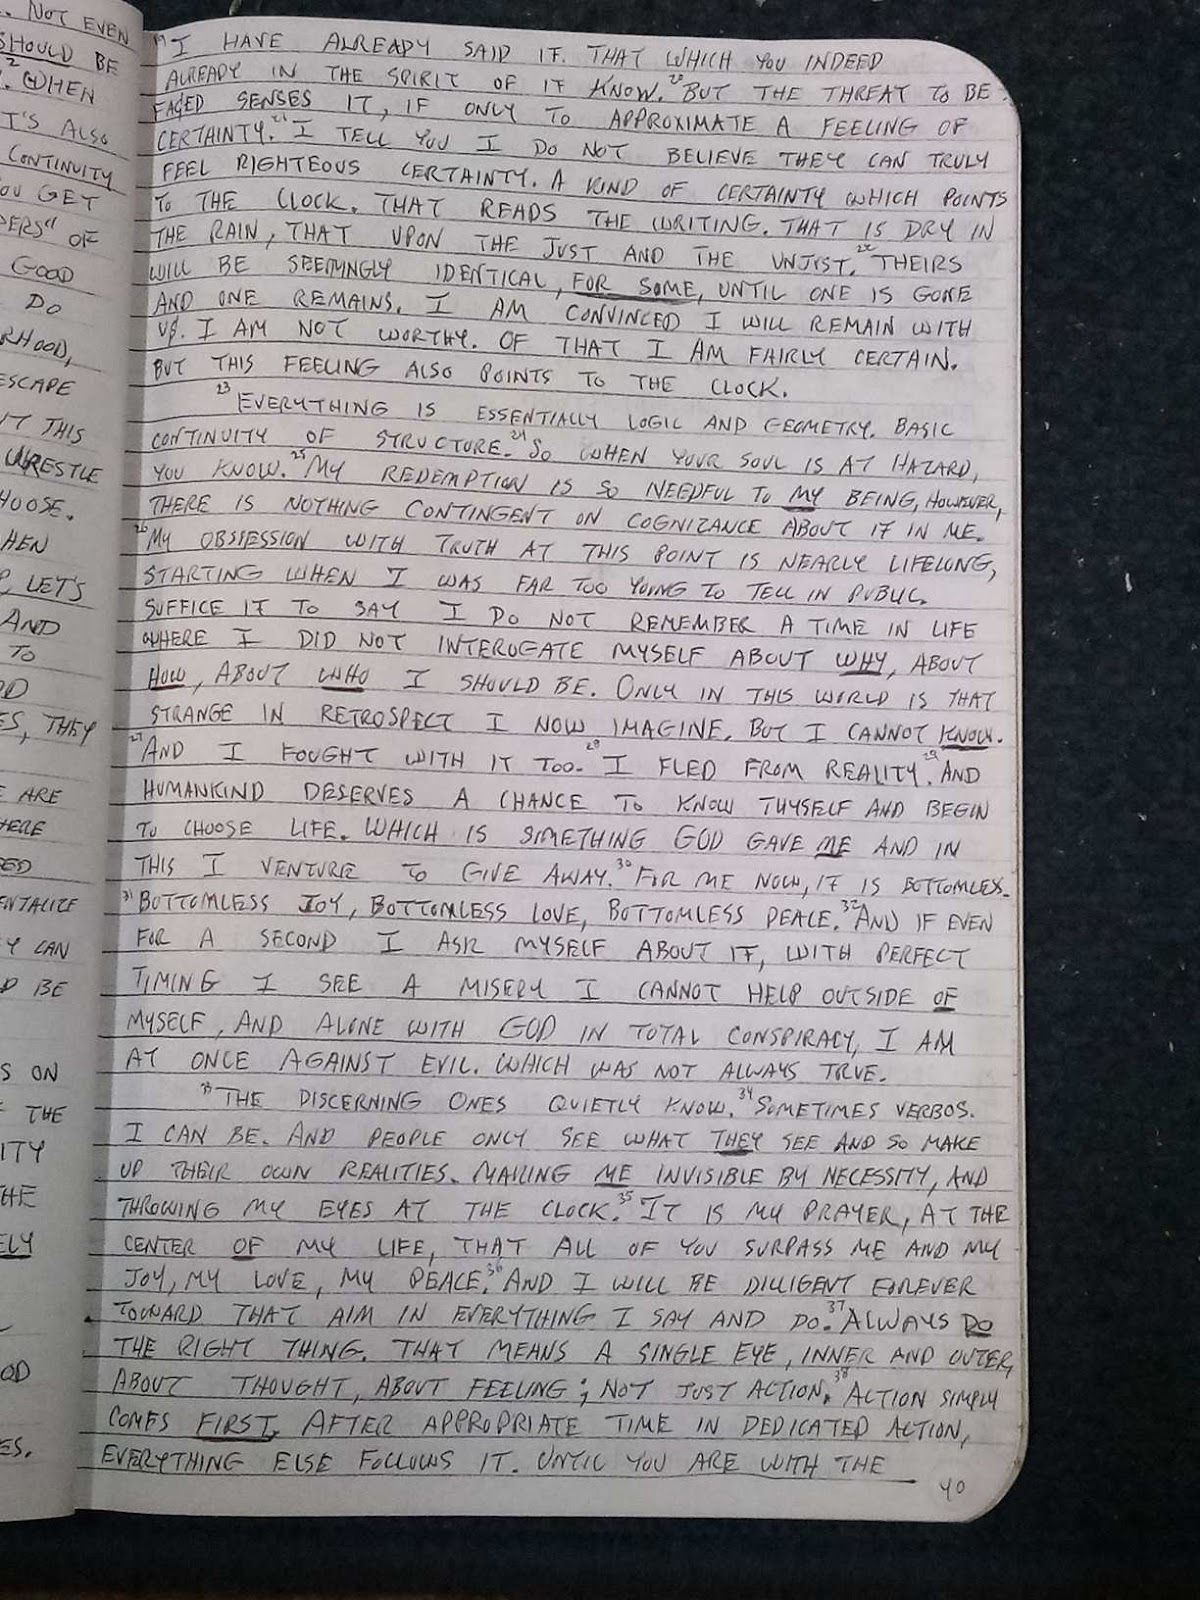 . NOT EVEN
SHOULD BE
WHEN
IT'S ALSO
CONTINUITY
YOU GET
OF
GOOD
DO
ESCAPE
THIS
WRESTLE
HOOSE.
HEN
LET'S
AND
TO
ES, THEY
ARE
HERE
CAN
BE
S ON
THE
ITY
THE
ELY
OD
ES.
19 I HAVE ALREADY SAID IT. THAT WHICH YOU INDEED
ALREADY IN THE SPIRIT OF IT KNOW. 20 BUT THE THREAT TO BE
FACED SENSES IT, IF ONLY TO APPROXIMATE A FEELING OF
CERTAINTY. 21 I TELL YOU I DO NOT BELIEVE THEY CAN TRULY
FEEL RIGHTEOUS CERTAINTY. A KIND OF CERTAINTY WHICH POINTS
TO THE CLOCK. THAT READS THE WRITING. THAT IS DRY IN
THE RAIN, THAT UPON THE JUST AND THE UNJUST. 22 THEIRS
WILL BE SEEMINGLY IDENTICAL, FOR SOME, UNTIL ONE IS GONE
AND ONE REMAINS. I AM CONVINCED I WILL REMAIN WITH
US. I AM NOT WORTHY. OF THAT I AM FAIRLY CERTAIN.
BUT THIS FEELING ALSO POINTS TO THE CLOCK.
23 EVERYTHING IS ESSENTIALLY LOGIC AND GEOMETRY. BASIC
CONTINUITY OF STRUCTURE. 24 SO WHEN YOUR SOUL IS AT HAZARD,
YOU KNOW. 25 MY REDEMPTION IS SO NEEDFUL TO MY BEING, HOWEVER,
THERE IS NOTHING CONTINGENT ON COGNIZANCE ABOUT IT IN ME.
26 MY OBSESSION WITH TRUTH AT THIS POINT IS NEARLY LIFELONG,
STARTING WHEN I WAS FAR TOO YOUNG TO TELL IN PUBLIC.
SUFFICE IT TO SAY I DO NOT REMEMBER A TIME IN LIFE
WHERE I DID NOT INTEROGATE MYSELF ABOUT WHY, ABOUT
HOW, ABOUT WHO I SHOULD BE. ONLY IN THIS WORLD IS THAT
STRANGE IN RETROSPECT I NOW IMAGINE. BUT I CANNOT KNOW.
27 AND I FOUGHT WITH IT TOO. 28 I FLED FROM REALITY. 29 AND
HUMANKIND DESERVES A CHANCE TO KNOW THYSELF AND BEGIN
TO CHOOSE LIFE. WHICH IS SOMETHING GOD GAVE ME AND IN
THIS I VENTURE TO GIVE AWAY. 30 FOR ME NOW, IT IS BOTTOMLESS.
31 BOTTOMLESS JOY, BOTTOMLESS LOVE, BOTTOMLESS PEACE. 32 AND IF EVEN
FOR A SECOND I ASK MYSELF ABOUT IT, WITH PERFECT
TIMING I SEE A MISERY I CANNOT HELP OUTSIDE OF
MYSELF, AND ALONE WITH GOD IN TOTAL CONSPIRACY, I AM
AT ONCE AGAINST EVIL. WHICH WAS NOT ALWAYS TRUE.
33 THE DISCERNING ONES QUIETLY KNOW. 34 SOMETIMES VERBOS.
I CAN BE. AND PEOPLE ONLY SEE WHAT THEY SEE AND SO MAKE
UP THEIR OWN REALITIES. MAKING ME INVISIBLE BY NECESSITY, AND
THROWING MY EYES AT THE CLOCK. 35 IT IS MY PRAYER, AT THE
CENTER OF MY LIFE, THAT ALL OF YOU SURPASS ME AND MY
JOY, MY LOVE, MY PEACE. 36 AND I WILL BE DILLIGENT FOREVER
TOWARD THAT AIM IN EVERYTHING I SAY AND DO. 37 ALWAYS DO
THE RIGHT THING. THAT MEANS A SINGLE EYE, INNER AND OUTER,
ABOUT THOUGHT, ABOUT FEELING; NOT JUST ACTION. 38 ACTION SIMPLY
COMES FIRST. AFTER APPROPRIATE TIME IN DEDICATED ACTION,
EVERYTHING ELSE FOLLOWS IT. UNTIL YOU ARE WITH THE
40